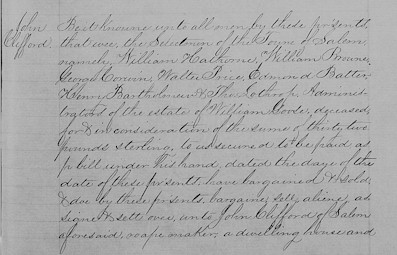 John Be it knowne unto all men by these pr'sents,
Clifford. that wee, the Selectmen of the Towne of Salem
namely, William Hathorne, William Browne,
George Corwin, Walter Price, Edmond Batter,
Henri Bartholmew & Tho: Lothrop Adminis-
trators of the estate of William Goose, deceased,
for & in consideration of the sume of thirty two
pounds sterling, to us secured to be paid as
p bill under his hand, dated the daye of the
date of these pr'sents, have bargained & sold,
& doe by these pr'sents, bargaine, sell, aliene, as
signe & sett over, unto John Clifford of Salem
aforesaid, roape maker, a dwelling house and